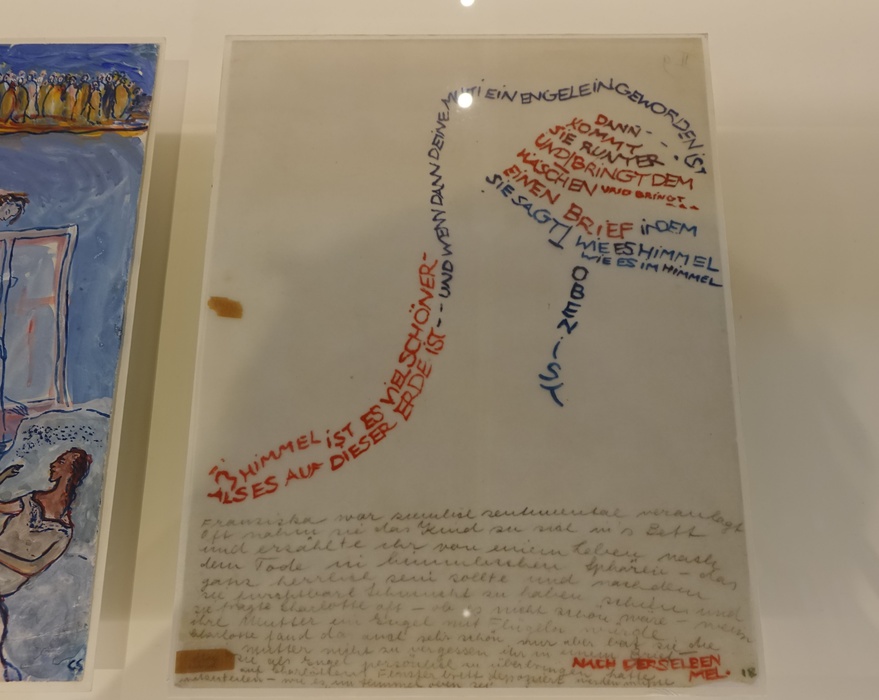 HIMMEL IST ES VIEL SCHÖNER-
ALS ES AUF DIESER ERDE IST--
UND WENN DANN DEINE MUTTI EIN ENGELEIN GEWORDEN IST
DANN---
KOMMT
SIE RUNTER
UND BRINGT DEM
HÄSCHEN UND BRINGT--
EINEN BRIEF IN DEM
SIE SAGT WIE ES HIMMEL
WIE ES IM HIMMEL
OBEN IST
Franziska war sentimental veranlagt
Oft nahm sie das Kind zu sich in's Bett
und erzählte ihr von einem Leben nach
dem Tode in himmlischen Sphären - das
ganz herrlich sein sollte und nach dem
sie Sehnsucht zu haben schien und
sie fragte Charlotte oft - ob es nicht schön wäre - wenn
ihre Mutter ein Engel mit Flügeln würde
Charlotte fand das auch sehr schön nur bat sie die
Mutter nicht zu vergessen ihr in einem Brief
sie als Engel persönlich zu überbringen hätte
wie es im Himmel oben sei
NACH DERSELBEN
MEL.
18
CS